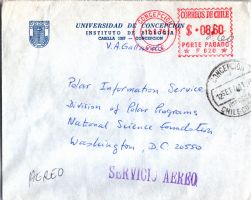 UNIVERSIDAD DE CONCEPCION
INSTITUTO DE BIOLOGIA
CASILLA 1367 - CONCEPCION
CONCEPCION
CORREOS DE CHILE
$ 0860
PORTE PAGADO
P 020
Polar Information Service
Division of Polar Programs
National Science Foundation
Washington, D.C. 20550
CONCEPCION
CHILE
AEREO
SERVICIO AEREO